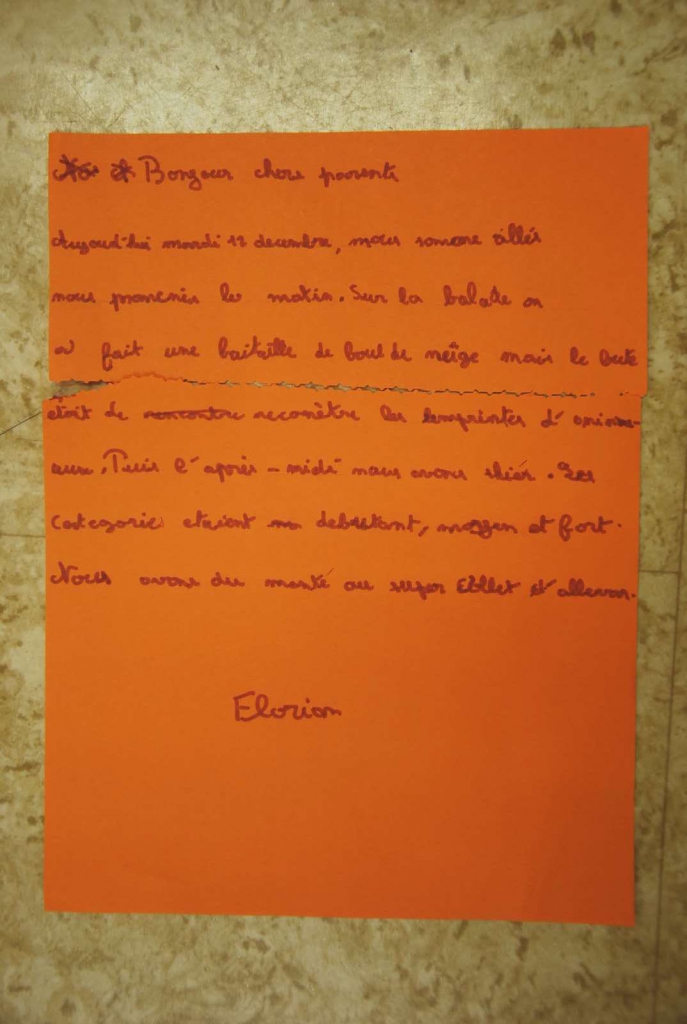 Bonjour chers parents
Aujourd'hui mardi 12 decembre, nous somme allés
nous promenés le matin. Sur la balade on
a fait une bataille de boul de neige mais le bute
étoit de rencontre reconètre les emprintes d'anim-
aux. Puis l'après-midi nous avons skiér. Les
categorie etaient debutant, moyen et fort.
Nous avons du monté au super Collet d'allevar.
Elorian